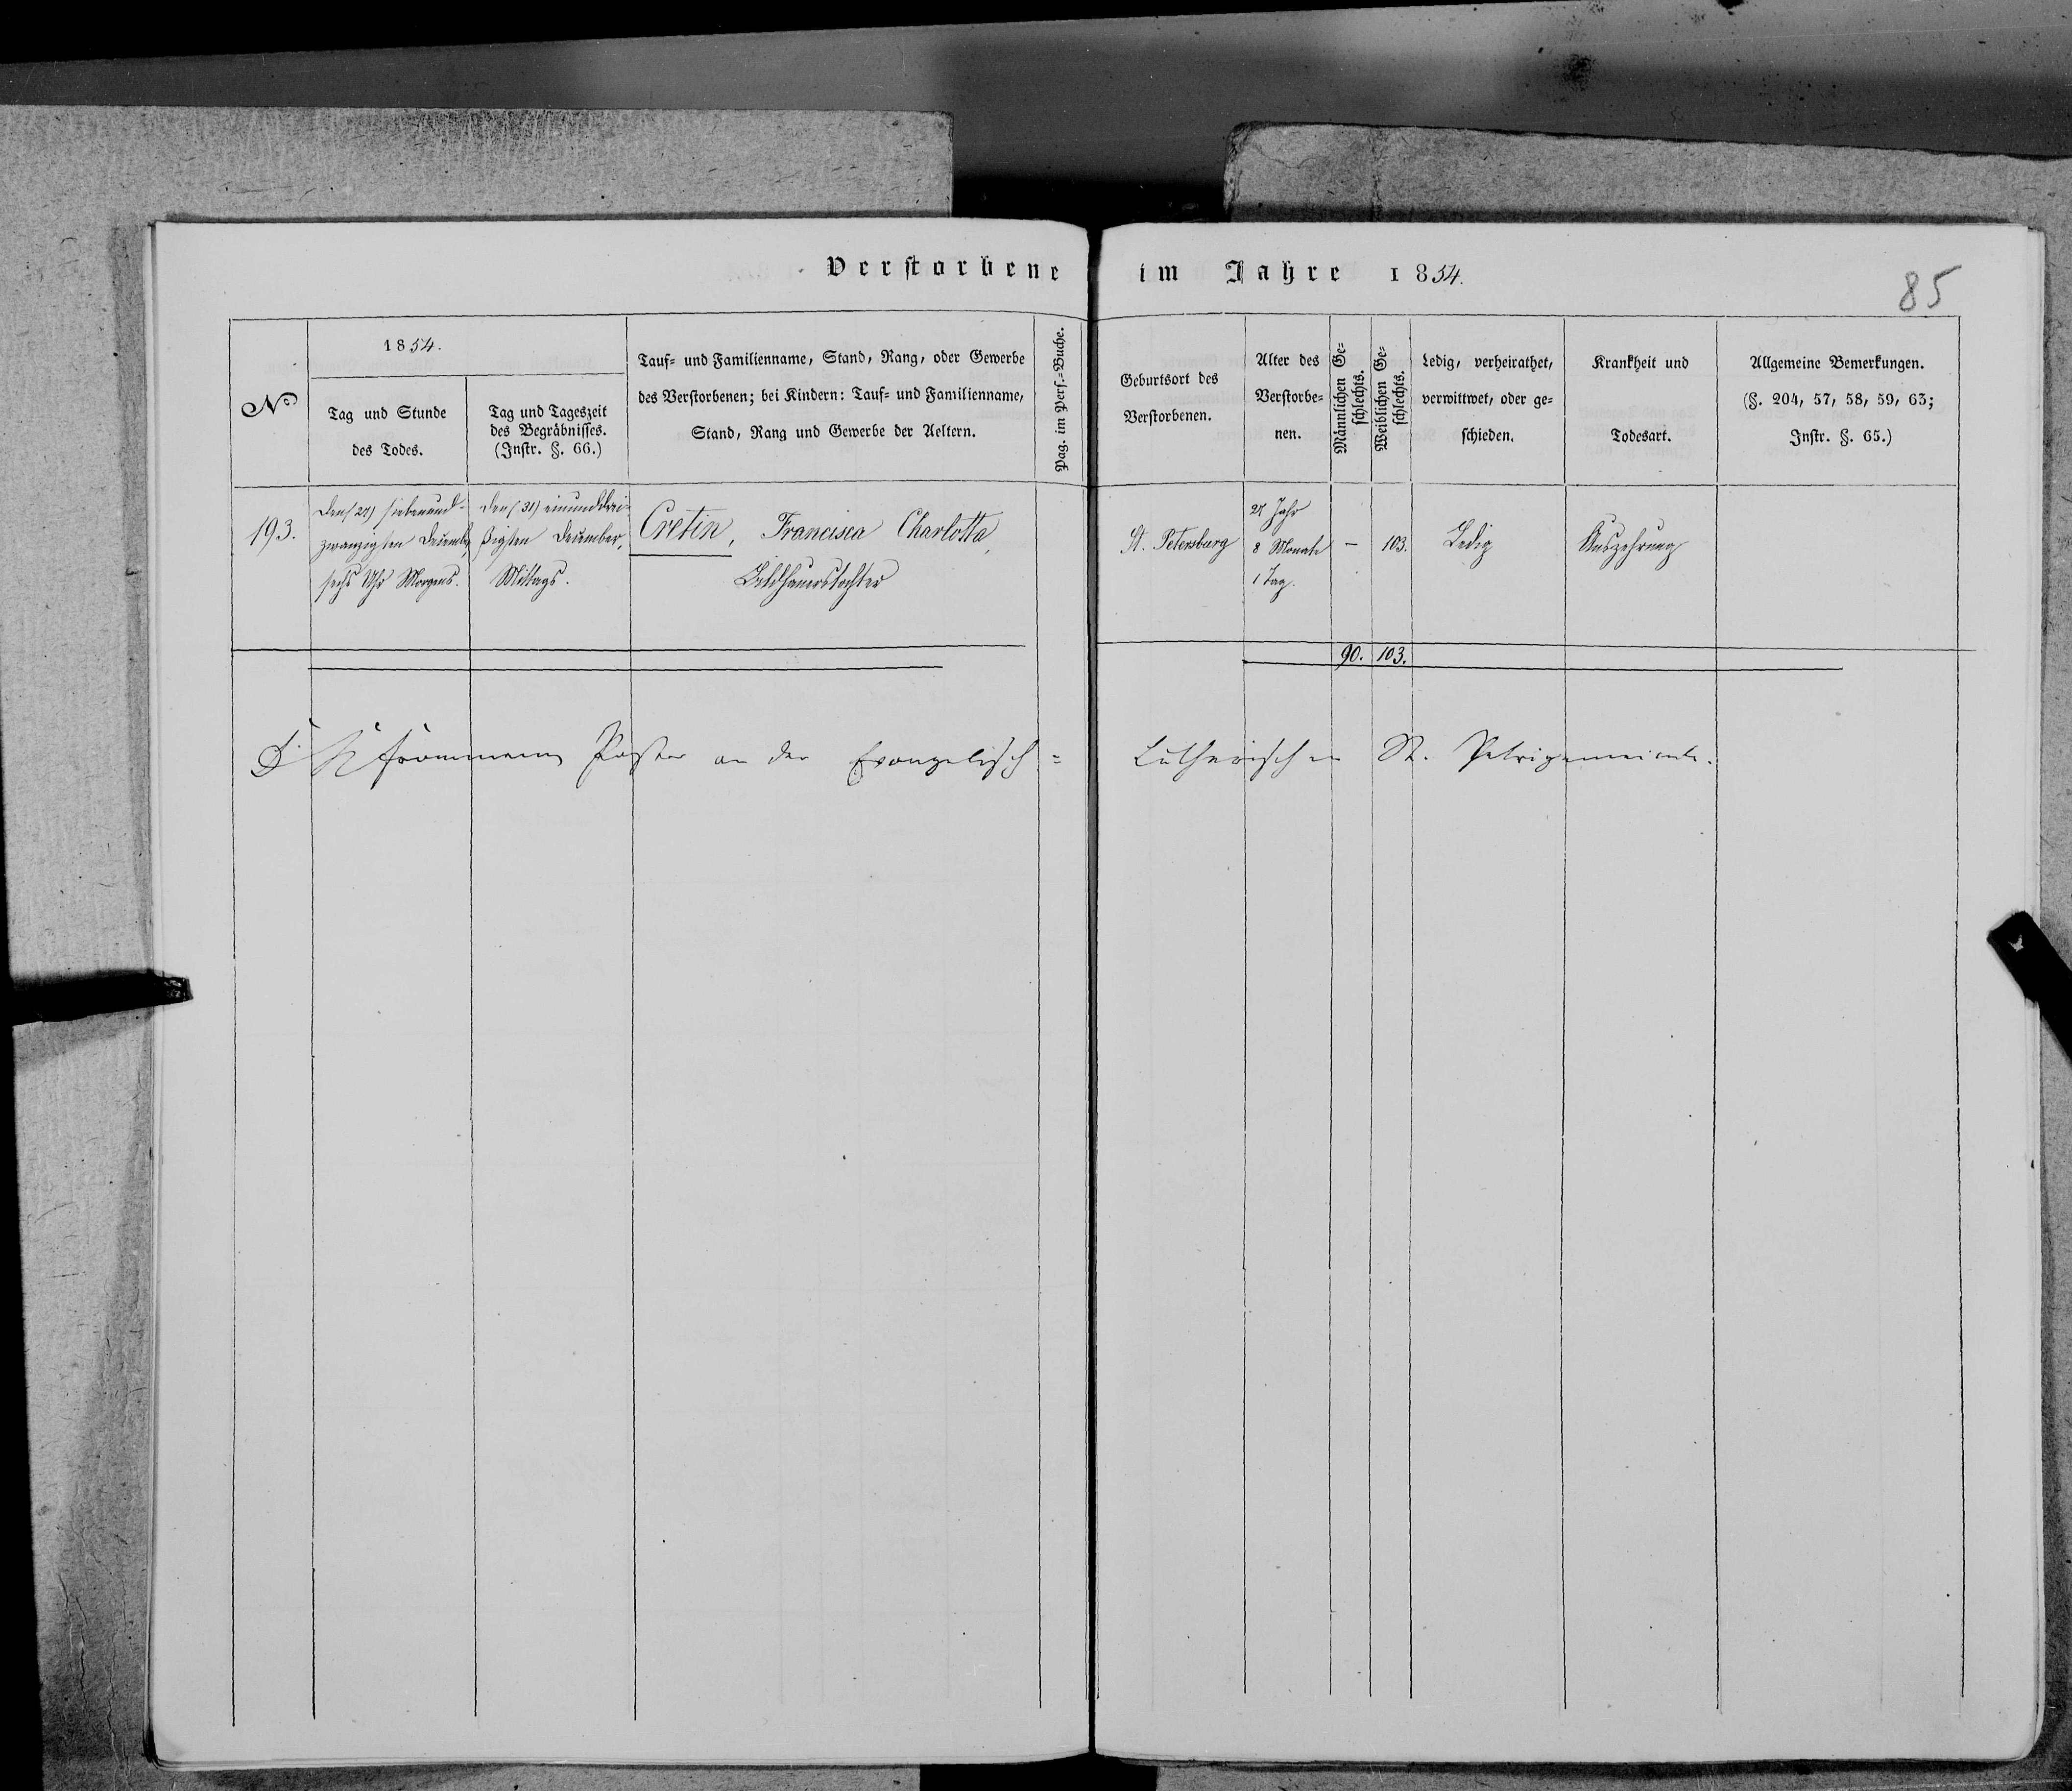 Verstorbene im Jahre 1854.
85
No
1854.
Tag und Stunde
des Todes.
Tag und Tageszeit
des Begräbnisses.
(Instr. §. 66.)
Tauf= und Familienname, Stand, Rang, oder Gewerbe
des Verstorbenen; bei Kindern: Tauf= und Familienname,
Stand, Rang und Gewerbe der Aeltern.
Pag. im Pers.=Buche.
Geburtsort des
Verstorbenen.
Alter des
Verstorbe-
nen.
Männlichen Ge-
schlechts.
Weiblichen Ge-
schlechts.
Ledig, verheirathet,
verwittwet, oder ge-
schieden.
Krankheit und
Todesart.
Allgemeine Bemerkungen.
(§. 204, 57, 58, 59, 63;
Instr. §. 65.)
193.
Den (27) siebenund-
zwanzigsten December,
sechs Uhr Morgens.
Den (31) einunddrei-
ßigsten December,
Mittags.
Cretin, Francisca Charlotta,
Bildhauerstochter
St. Petersburg
27 Jahr
8 Monate
1 Tag.
—
103.
Ledig
Auszehrung
90. 103.
Frommann Pastor an der Evangelisch= Lutherischen St. Petrigemeinde.